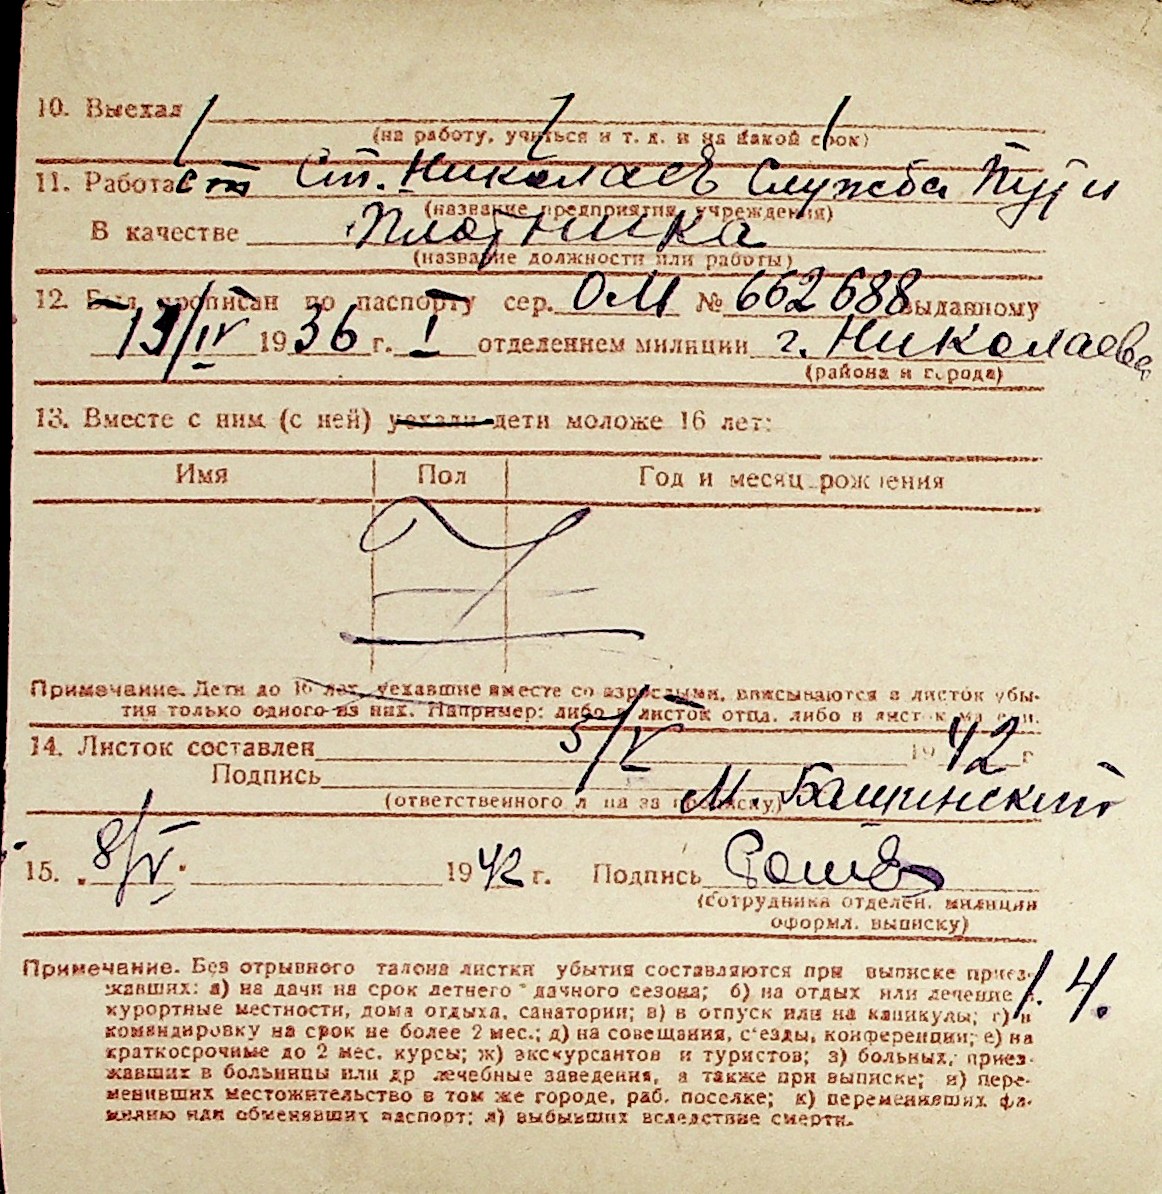 10. Выехал
(на работу, учиться и т. д. и на какой срок)
11. Работает Ст. Николаев Служба Пути
(название предприятия, учреждения)
В качестве Плотника
(название должности или работы)
12. Был прописан по паспорту сер. ОМ № 662688 выданному
13/IV 1936 г. I отделением милиции г. Николаева
(района и города)
13. Вместе с ним (с ней) уехали дети моложе 16 лет:
Имя Пол Год и месяц рождения
Примечание. Дети до 16 лет, уехавшие вместе со взрослыми, вписываются в листок убы-
тия только одного из них. Например: либо в листок отца, либо в листок матери.
14. Листок составлен 5/V 1942 г
Подпись М. Бащинский
(ответственного лица за прописку)
15. 8/V 1942 г. Подпись
(сотрудника отделен. милиции
оформл. выписку)
1. 4.
Примечание. Без отрывного талона листки убытия составляются при выписке приез-
жавших: а) на дачи на срок летнего дачного сезона; б) на отдых или лечение в
курортные местности, дома отдыха, санатории; в) в отпуск или на каникулы; г) в
командировку на срок не более 2 мес.; д) на совещания, с'езды, конференции; е) на
краткосрочные до 2 мес. курсы; ж) экскурсантов и туристов; з) больных, приез-
жавших в больницы или др лечебные заведения, а также при выписке; и) пере-
менивших местожительство в том же городе, раб. поселке; к) переменивших фа-
милию или обменявших паспорт; л) выбывших вследствие смерти.